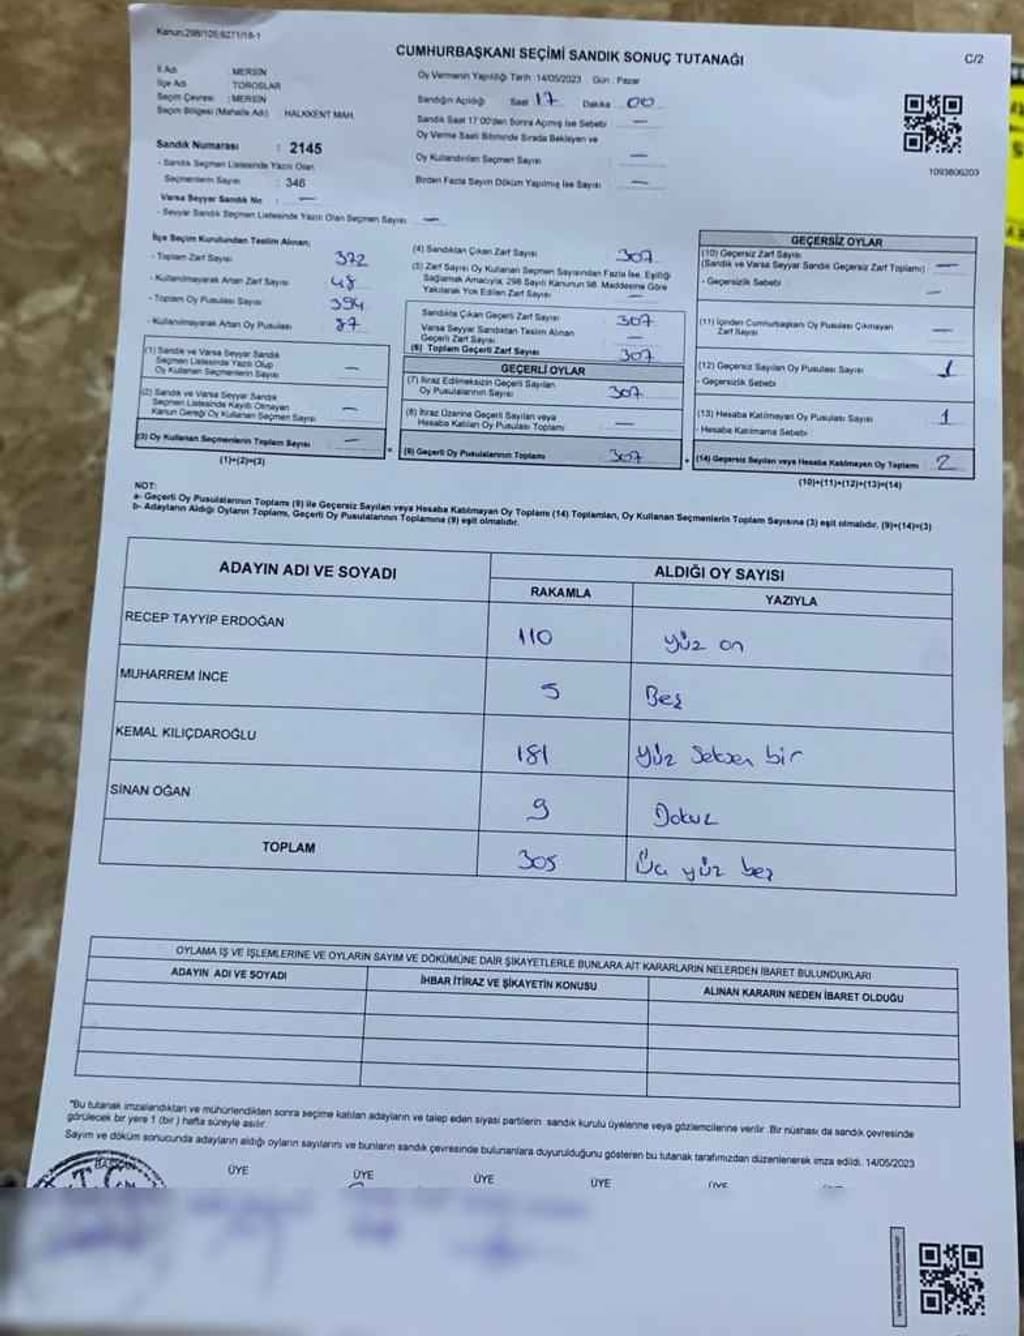 Kanun:298/105;6271/18-1
CUMHURBAŞKANI SEÇİMİ SANDIK SONUÇ TUTANAĞI
C/2
İl Adı : MERSİN
İlçe Adı : TOROSLAR
Seçim Çevresi : MERSİN
Seçim Bölgesi (Mahalle Adı) HALKKENT MAH.
Sandık Numarası : 2145
- Sandık Seçmen Listesinde Yazılı Olan
Seçmenlerin Sayısı : 346
Varsa Seyyar Sandık No : —
- Seyyar Sandık Seçmen Listesinde Yazılı Olan Seçmen Sayısı : —
Oy Vermenin Yapıldığı Tarih : 14/05/2023 Gün : Pazar
Sandığın Açıldığı Saat 17 Dakika 00
Sandık Saat 17:00'den Sonra Açılmış İse Sebebi : —
Oy Verme Saati Bitiminde Sırada Bekleyen ve
Oy Kullandırılan Seçmen Sayısı : —
Birden Fazla Sayım Döküm Yapılmış İse Sayısı : —
1093806203
İlçe Seçim Kurulundan Teslim Alınan;
- Toplam Zarf Sayısı : 372
- Kullanılmayarak Artan Zarf Sayısı : 48
- Toplam Oy Pusulası Sayısı : 394
- Kullanılmayarak Artan Oy Pusulası : 87
(1) Sandık ve Varsa Seyyar Sandık
Seçmen Listesinde Yazılı Olup
Oy Kullanan Seçmenlerin Sayısı —
(2) Sandık ve Varsa Seyyar Sandık
Seçmen Listesinde Kayıtlı Olmayan
Kanun Gereği Oy Kullanan Seçmen Sayısı —
(3) Oy Kullanan Seçmenlerin Toplam Sayısı —
(1)+(2)=(3)
(4) Sandıktan Çıkan Zarf Sayısı 307
(5) Zarf Sayısı Oy Kullanan Seçmen Sayısından Fazla İse, Eşitliği
Sağlamak Amacıyla, 298 Sayılı Kanunun 98. Maddesine Göre
Yakılarak Yok Edilen Zarf Sayısı —
Sandıkta Çıkan Geçerli Zarf Sayısı 307
Varsa Seyyar Sandıktan Teslim Alınan
Geçerli Zarf Sayısı —
(6) Toplam Geçerli Zarf Sayısı 307
GEÇERLİ OYLAR
(7) İtiraz Edilmeksizin Geçerli Sayılan
Oy Pusulalarının Sayısı 307
(8) İtiraz Üzerine Geçerli Sayılan veya
Hesaba Katılan Oy Pusulası Toplamı —
(9) Geçerli Oy Pusulalarının Toplamı 307
GEÇERSİZ OYLAR
(10) Geçersiz Zarf Sayısı
(Sandık ve Varsa Seyyar Sandık Geçersiz Zarf Toplamı) —
- Geçersizlik Sebebi —
(11) İçinden Cumhurbaşkanı Oy Pusulası Çıkmayan
Zarf Sayısı —
(12) Geçersiz Sayılan Oy Pusulası Sayısı 1
- Geçersizlik Sebebi
(13) Hesaba Katılmayan Oy Pusulası Sayısı 1
- Hesaba Katılmama Sebebi
(14) Geçersiz Sayılan veya Hesaba Katılmayan Oy Toplamı 2
(10)+(11)+(12)+(13)=(14)
NOT:
a- Geçerli Oy Pusulalarının Toplamı (9) ile Geçersiz Sayılan veya Hesaba Katılmayan Oy Toplamı (14) Toplamları, Oy Kullanan Seçmenlerin Toplam Sayısına (3) eşit olmalıdır. (9)+(14)=(3)
b- Adayların Aldığı Oyların Toplamı, Geçerli Oy Pusulalarının Toplamına (9) eşit olmalıdır.
ADAYIN ADI VE SOYADI ALDIĞI OY SAYISI
RAKAMLA YAZIYLA
RECEP TAYYİP ERDOĞAN 110 yüz on
MUHARREM İNCE 5 Beş
KEMAL KILIÇDAROĞLU 181 yüz seksen bir
SİNAN OĞAN 9 Dokuz
TOPLAM 305 Üç yüz beş
OYLAMA İŞ VE İŞLEMLERİNE VE OYLARIN SAYIM VE DÖKÜMÜNE DAİR ŞİKAYETLERLE BUNLARA AİT KARARLARIN NELERDEN İBARET BULUNDUKLARI
ADAYIN ADI VE SOYADI İHBAR İTİRAZ VE ŞİKAYETİN KONUSU ALINAN KARARIN NEDEN İBARET OLDUĞU
*Bu tutanak imzalandıktan ve mühürlendikten sonra seçime katılan adayların ve talep eden siyasi partilerin sandık kurulu üyelerine veya gözlemcilerine verilir. Bir nüshası da sandık çevresinde
görülecek bir yere 1 (bir) hafta süreyle asılır.
Sayım ve döküm sonucunda adayların aldığı oyların sayılarını ve bunların sandık çevresinde bulunanlara duyurulduğunu gösteren bu tutanak tarafımızdan düzenlenerek imza edildi. 14/05/2023
BAŞKAN ÜYE ÜYE ÜYE ÜYE ÜYE
T.C.